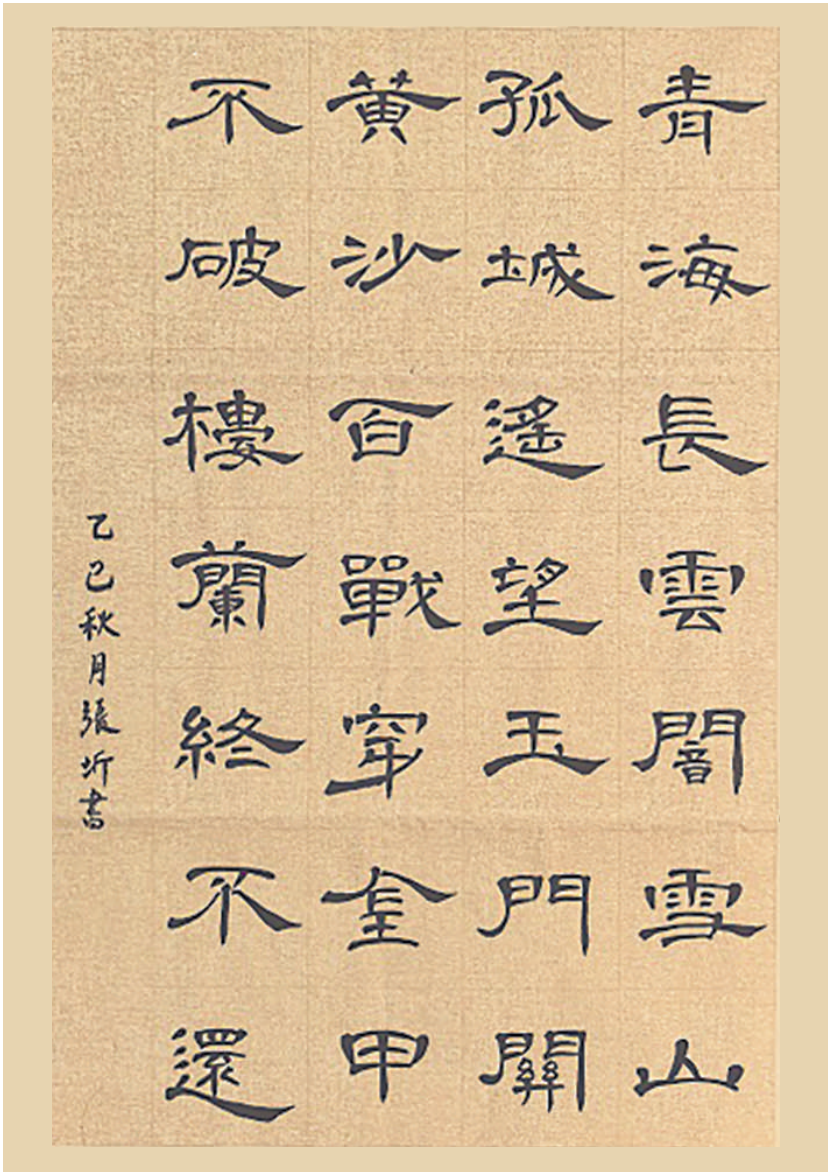 青海長雲闇雪山
孤城遥望玉門關
黄沙百戰穿金甲
不破樓蘭終不還
乙巳秋月張圻書